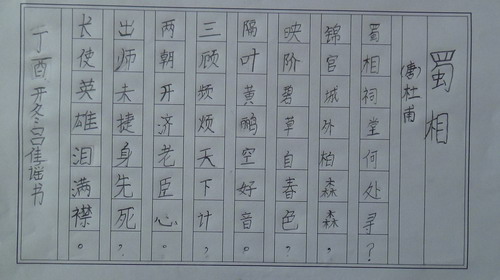 蜀相
(唐)杜甫
蜀相祠堂何处寻?
锦官城外柏森森。
映阶碧草自春色,
隔叶黄鹂空好音。
三顾频烦天下计,
两朝开济老臣心。
出师未捷身先死,
长使英雄泪满襟。
丁酉开冬吕佳谣书